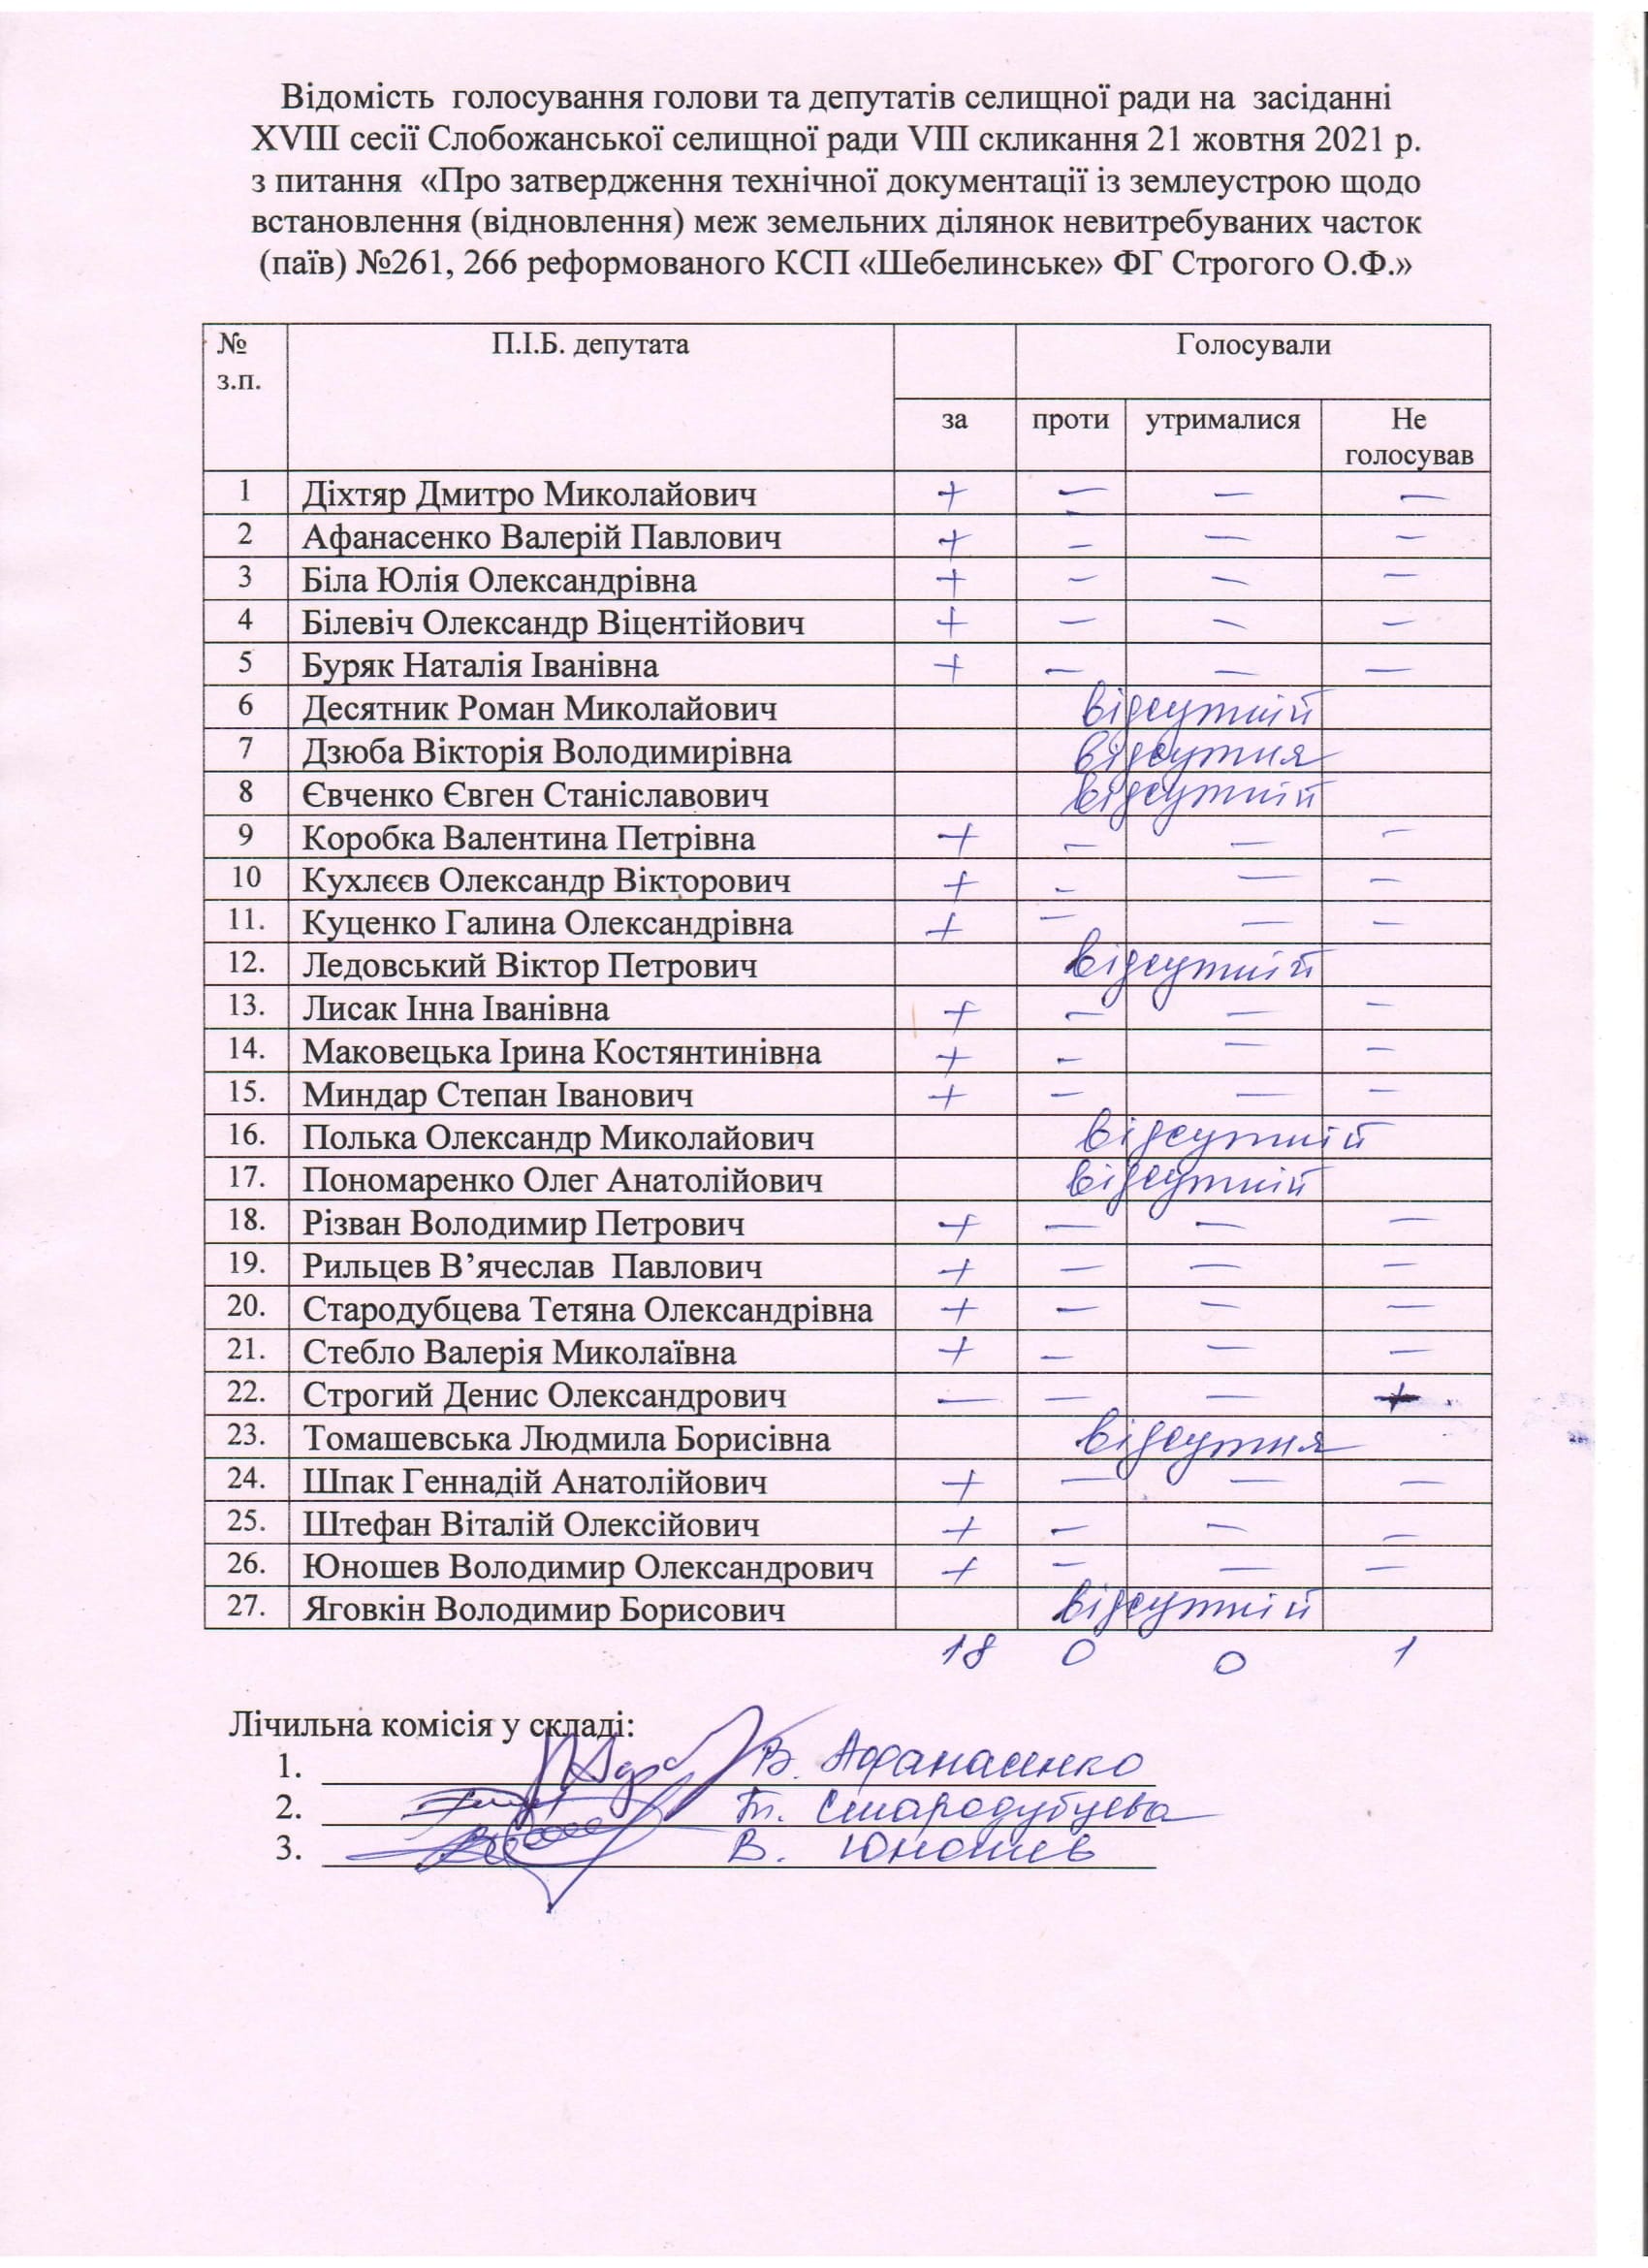 Відомість голосування голови та депутатів селищної ради на засіданні
XVIII сесії Слобожанської селищної ради VIII скликання 21 жовтня 2021 р.
з питання «Про затвердження технічної документації із землеустрою щодо
встановлення (відновлення) меж земельних ділянок невитребуваних часток
(паїв) №261, 266 реформованого КСП «Шебелинське» ФГ Строгого О.Ф.»
№ з.п. П.І.Б. депутата Голосували
за проти утрималися Не голосував
1 Діхтяр Дмитро Миколайович + — — —
2 Афанасенко Валерій Павлович + — — —
3 Біла Юлія Олександрівна + — — —
4 Білевіч Олександр Віцентійович + — — —
5 Буряк Наталія Іванівна + — — —
6 Десятник Роман Миколайович відсутній
7 Дзюба Вікторія Володимирівна відсутня
8 Євченко Євген Станіславович відсутній
9 Коробка Валентина Петрівна + — — —
10 Кухлєєв Олександр Вікторович + — — —
11. Куценко Галина Олександрівна + — — —
12. Ледовський Віктор Петрович відсутній
13. Лисак Інна Іванівна + — — —
14. Маковецька Ірина Костянтинівна + — — —
15. Миндар Степан Іванович + — — —
16. Полька Олександр Миколайович відсутній
17. Пономаренко Олег Анатолійович відсутній
18. Різван Володимир Петрович + — — —
19. Рильцев В’ячеслав Павлович + — — —
20. Стародубцева Тетяна Олександрівна + — — —
21. Стебло Валерія Миколаївна + — — —
22. Строгий Денис Олександрович — — — +
23. Томашевська Людмила Борисівна відсутня
24. Шпак Геннадій Анатолійович + — — —
25. Штефан Віталій Олексійович + — — —
26. Юношев Володимир Олександрович + — — —
27. Яговкін Володимир Борисович відсутній
18 0 0 1
Лічильна комісія у складі:
1. В. Афанасенко
2. Т. Стародубцева
3. В. Юношев